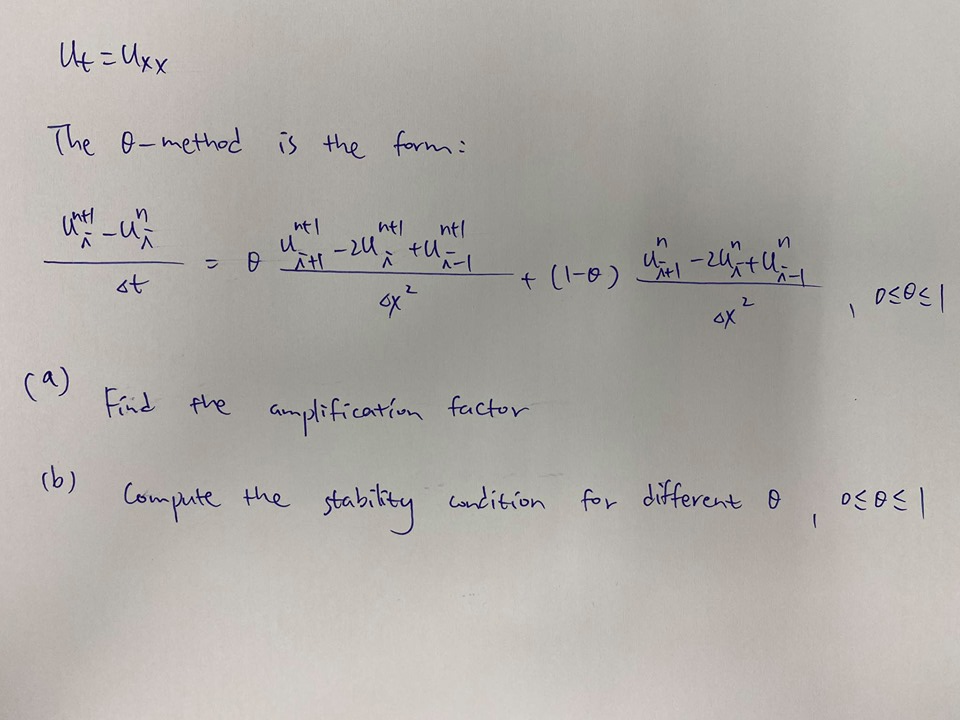 u_t = u_xx
The θ-method is the form:
(u_i^{n+1} - u_i^n)/Δt = θ (u_{i+1}^{n+1} - 2u_i^{n+1} + u_{i-1}^{n+1})/Δx² + (1-θ) (u_{i+1}^n - 2u_i^n + u_{i-1}^n)/Δx² , 0≤θ≤1
(a) Find the amplification factor
(b) Compute the stability condition for different θ , 0≤θ≤1